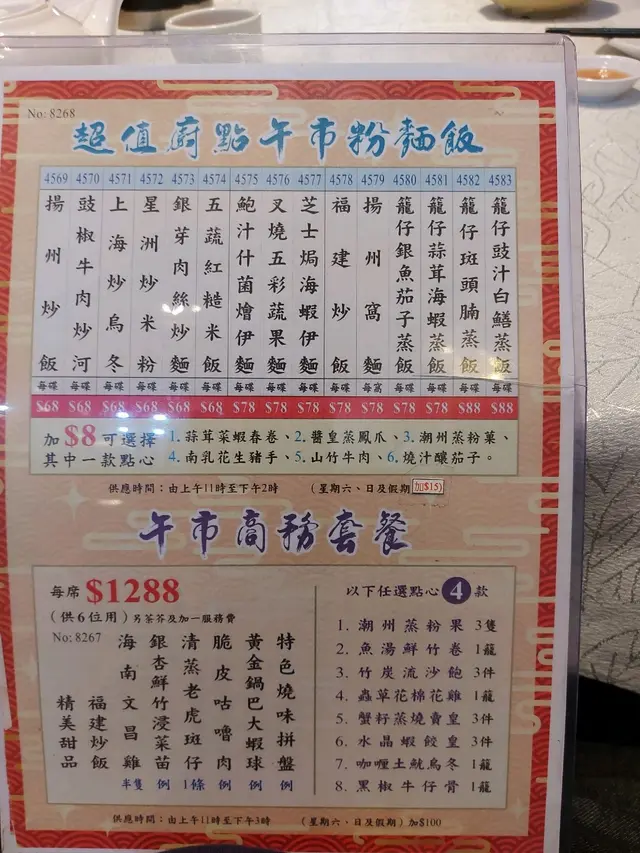 No: 8268
超值廚點午市粉麵飯
4569 揚州炒飯 每碟 $68
4570 豉椒牛肉炒河 每碟 $68
4571 上海炒烏冬 每碟 $68
4572 星洲炒米粉 每碟 $68
4573 銀芽肉絲炒麵 每碟 $68
4574 五蔬紅糙米飯 每碟 $68
4575 鮑汁什菌燴伊麵 每碟 $78
4576 叉燒五彩蔬果麵 每碟 $78
4577 芝士焗海蝦伊麵 每碟 $78
4578 福建炒飯 每碟 $78
4579 揚州窩麵 每窩 $78
4580 籠仔銀魚茄子蒸飯 每碟 $78
4581 籠仔蒜茸海蝦蒸飯 每碟 $78
4582 籠仔斑頭腩蒸飯 每碟 $88
4583 籠仔豉汁白鱔蒸飯 每碟 $88
加 $8 可選擇
其中一款點心
1. 蒜茸菜蝦春卷、2. 醬皇蒸鳳爪、3. 潮州蒸粉菓、
4. 南乳花生豬手、5. 山竹牛肉、6. 燒汁釀茄子。
供應時間：由上午11時至下午2時 (星期六、日及假期 加$15)
午市商務套餐
每席 $1288
(供6位用) 另茶芥及加一服務費
No: 8267
特色燒味拼盤 例
黃金鍋巴大蝦球 例
脆皮咕嚕肉 例
清蒸老虎斑仔 1條
銀杏鮮竹浸菜苗 例
海南文昌雞 半隻
福建炒飯
精美甜品
以下任選點心 4 款
1. 潮州蒸粉果 3隻
2. 魚湯鮮竹卷 1籠
3. 竹炭流沙飽 3件
4. 蟲草花棉花雞 1籠
5. 蟹籽蒸燒賣皇 3件
6. 水晶蝦餃皇 3件
7. 咖喱土魷烏冬 1籠
8. 黑椒牛仔骨 1籠
供應時間：由上午11時至下午3時 (星期六、日及假期) 加$100